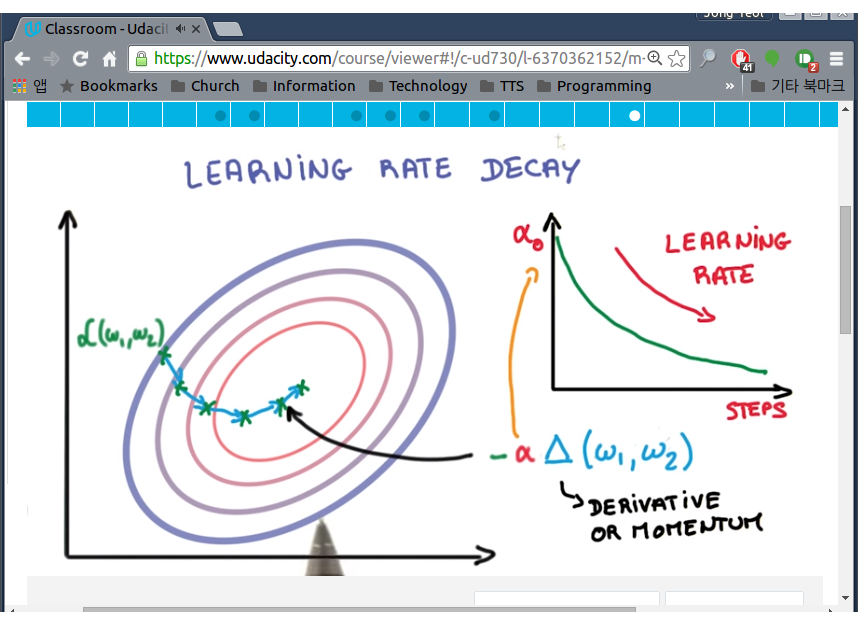 Classroom - Udaci
https://www.udacity.com/course/viewer#!/c-ud730/l-6370362152/m-
41
2
앱 Bookmarks Church Information Technology TTS Programming » 기타 북마크
LEARNING RATE DECAY
α₀
LEARNING
RATE
ℒ(ω₁,ω₂)
STEPS
-α Δ(ω₁,ω₂)
DERIVATIVE
OR MOMENTUM